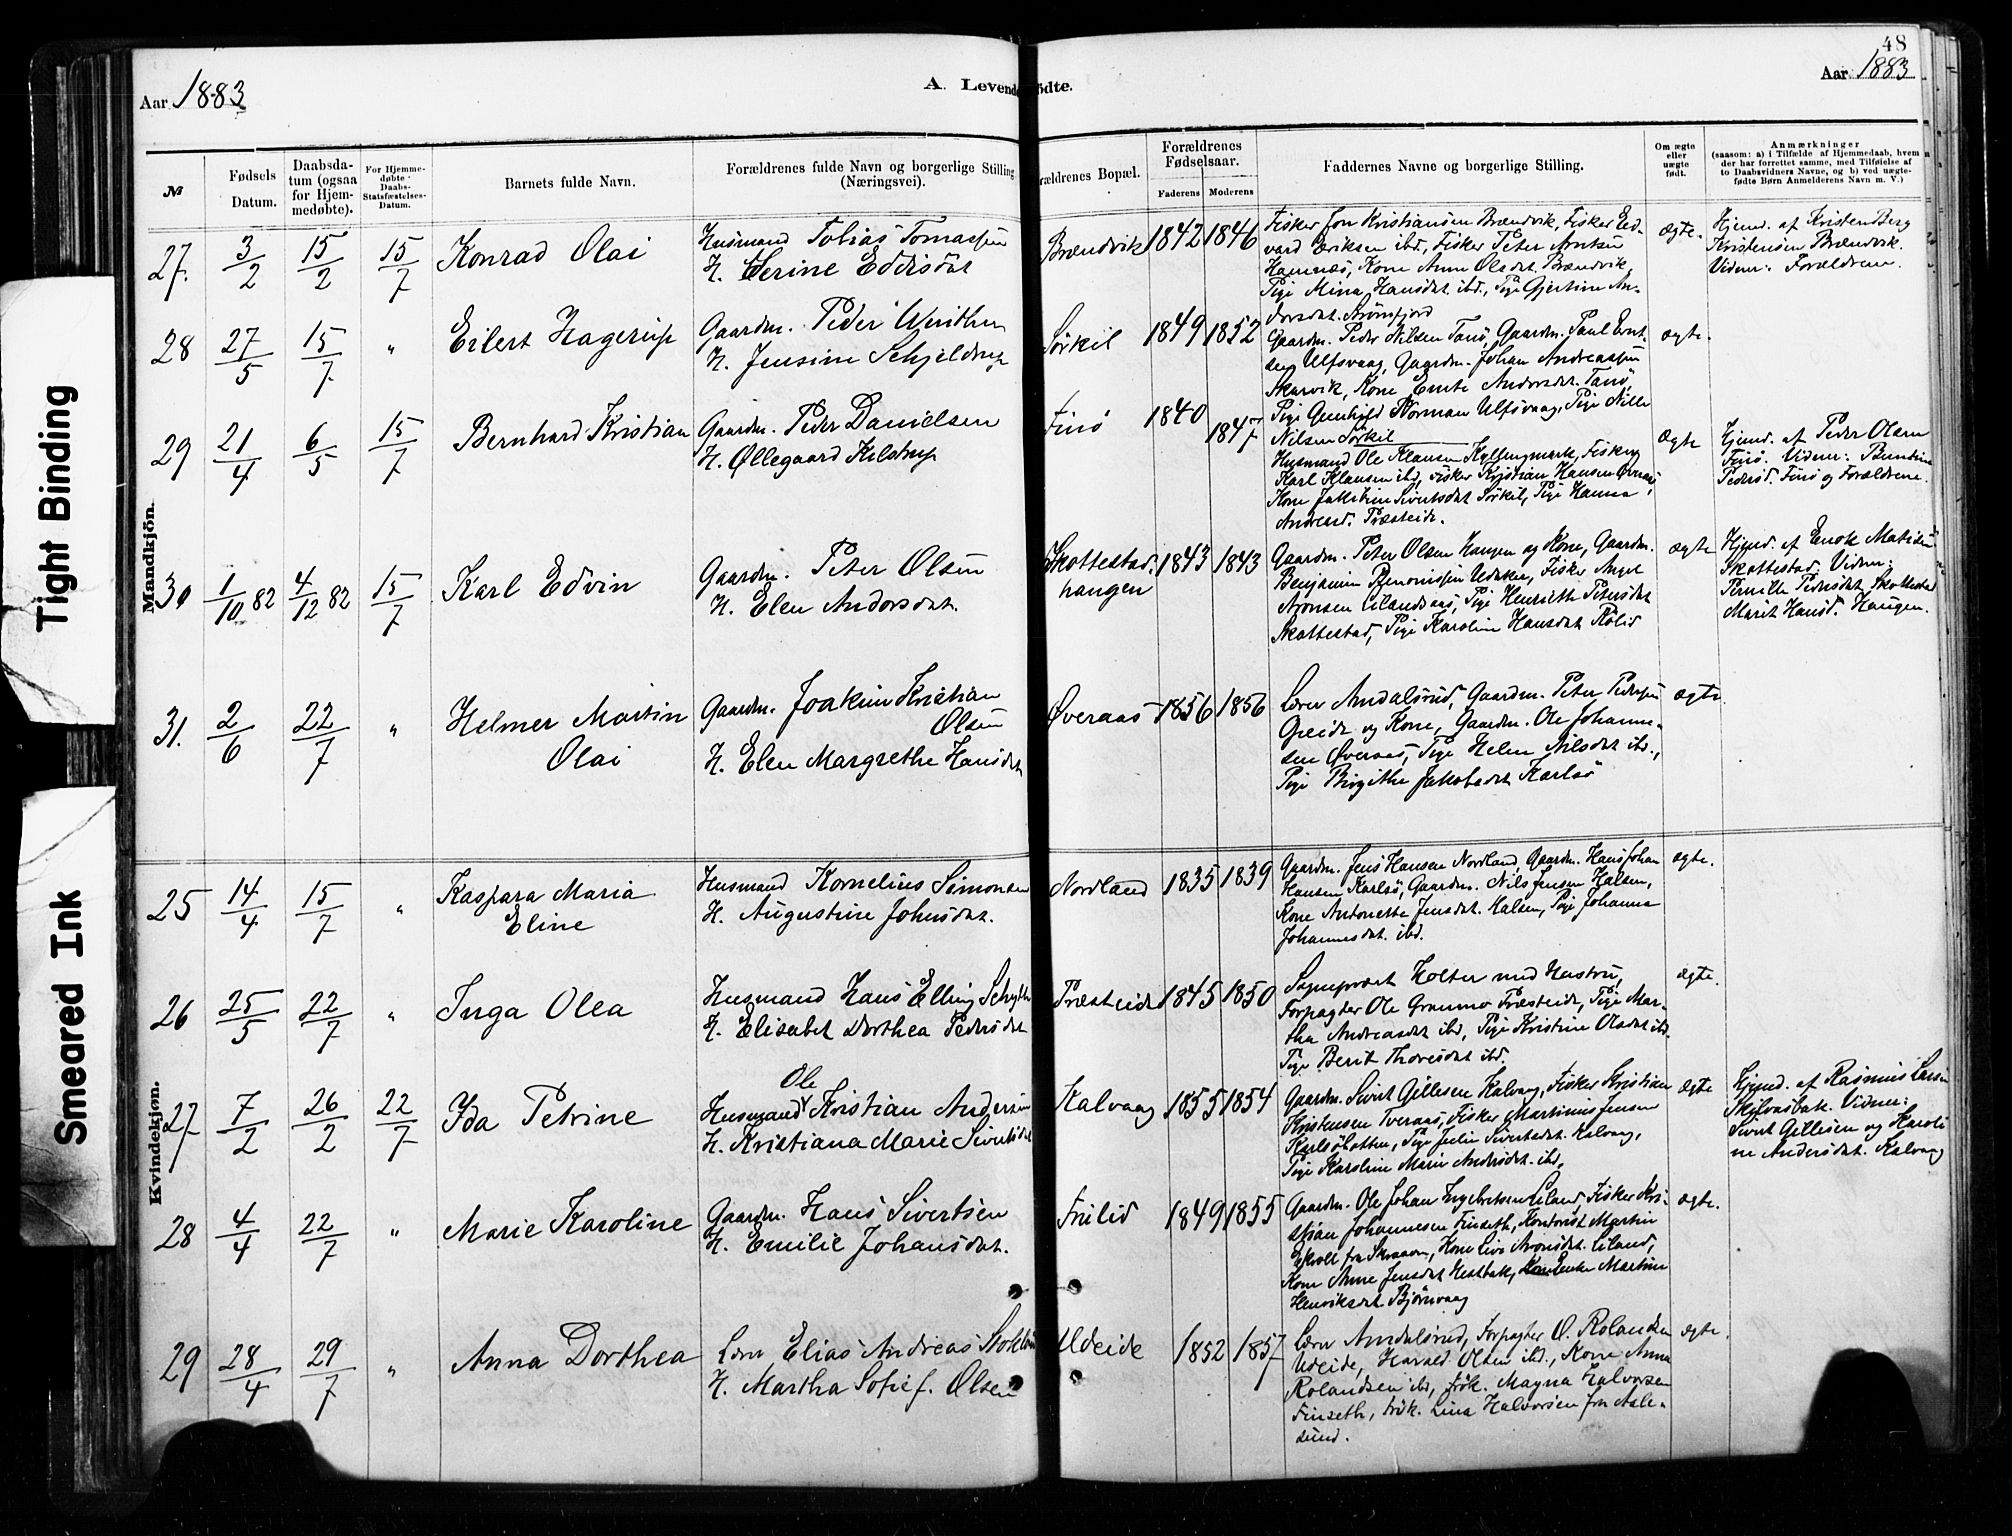 48
Aar 1883
A. Levendefødte.
Aar 1883
№
Fødsels Datum.
Daabsdatum (ogsaa for Hjemmedøbte).
For Hjemmedøbte: Daabs-Statsfæstelses-Datum.
Barnets fulde Navn.
Forældrenes fulde Navn og borgerlige Stilling (Næringsvei).
Forældrenes Bopæl.
Forældrenes Fødselsaar.
Faderens
Moderens
Faddernes Navne og borgerlige Stilling.
Om ægte eller uægte født.
Anmærkninger
(saasom: a) i Tilfælde af Hjemmedaab, hvem der har forrettet samme, med Tilføielse af to Daabsvidners Navne, og b) ved uægtefødte Børn Anmelderens Navn m. V.)
Tight Binding
Smeared Ink
Mandkjön.
27. 3/2 15/2 15/7 Konrad Olai
Husmand Tobias Tomassen
H. Serine Eddisdat
Brændvik 1842 1846
Fisker Jon Kristiansen Brændvik, Fisker Ed-
vard Eriksen ibd, Fisker Peter Antsen
Hamnæs, Kone Anne Olsdat. Brændvik,
Pige Mina Hansdat. ibd., Pige Gjertine An-
dorsdat.
ægte.
Hjemd. af Kristen Berg
Kristensen Brændvik.
Vidner: Forældrene.
28 27/5 15/7 " Eilert Hagerup
Gaardm. Peder
H. Jensine Schjeldrup
Sørkil 1849 1852
Gaardm. Peder Nilsen Tanø, Gaardm. Paul
sen Ulfsvaag, Gaardm. Johan Andreassen
Skarvik, Kone Andorsdat. Tanø,
Pige Gunhild Norman Ulfsvaag, Pige
Nilsen Sørkil
ægte.
29 21/4 6/5 15/7 Bernhard Kristian
Gaardm. Peder Danielsen
H. Øllegaard Kilstrup
Finø 1840 1847
Husmand Ole Klausen Fisker
Karl Klausen ibd, Fisker Kristian Hansen
Kone Sivertsdat Sørkil, Pige Hanna
Andreasd. Præsteide.
Ægte
Hjemd. af Peder Olsen
Finø. Vidner:
Pedersd. Finø og Forældrene.
30 1/10 82 4/12 82 15/7 Karl Edvin
Gaardm. Peter Olsen
H. Elen Andorsdat.
Skottestad-
haugen 1843 1843
Gaardm. Peter Olsen Haugen og Kone, Gaardm.
Benjamin Fisker Angel
Aronsen Pige Henriette Petersdat
Skottestad, Pige Karoline Hansdat Rølid
ægte
Hjemd. af Enok
Skottestad. Vidner:
Pernille Pedersdat Skottestad
Marit Hansd. Haugen.
31. 2/6 22/7 " Helmer Martin
Olai
Gaardm. Joakim Kristian
Olsen
H. Elen Margrethe Hansdat
Øveraas 1856 1856
Lærer Amdalsrud, Gaardm. Peter Pedersen
Greide og Kone, Gaardm. Ole Johanne-
sen Øveraas, Pige Helen Nilsdat ibd.,
Pige Birgithe Jakobsdat Karlsø
ægte
Kvindekjön.
25 14/4 15/7 " Kaspara Maria
Eline
Husmand Kornelius Simonsen
H. Augustine Johnsdat.
Nordland 1835 1839
Gaardm. Jens Hansen Nordland, Gaardm. Hans Johan
Hansen Karlsø, Gaardm. Nils Jensen Halsen,
Kone Antonette Jensdat. Halsen, Pige Johanna
Johannesdat. ibd.
ægte.
26 25/5 22/7 " Inga Olea
Husmand Hans Elling
H. Elisabet Dorthea Pedersdat
Præsteide 1845 1850
Sogneprest Holter med Hustru,
Forpagter Ole Grønmo Præsteide, Pige Mar-
tha Andreasdat ibd, Pige Kristine Olsdat ibd.
Pige Berit Thoresdat ibd.
ægte.
27 7/2 26/2 22/7 Ida Petrine
Husmand Ole Kristian Andersen
H. Kristiana Marie Sivertsdat
Kalvaag 1855 1854
Gaardm. Sivert Gillesen Kalvaag, Fisker Kristian
Kristensen Tveraas, Fisker Martinus Jensen
Pige Julie Sivertsdat. Kalvaag,
Pige Karoline Marie Andersdat. ibd.
ægte
Hjemd. af Rasmus Larsen
Vidner:
Sivert Gillesen og Karoli-
ne Andersdat. Kalvaag
28 4/4 22/7 " Marie Karoline
Gaardm. Hans Sivertsen
H. Emilie Johansdat.
Frilid 1849 1855
Gaardm. Ole Johan Ingebretsen Liland, Fisker Kri-
stian Johannesen Finseth, Martin
fra Skraaen, Kone Live Aronsdat. Liland,
Kone Anne Jensdat Hestbak, Enke Martine
Henriksdat Bjørnvaag
ægte.
29 28/4 29/7 " Anna Dorthea
Lærer Elias Andreas
H. Martha Sofie f. Olsen
Udeide 1852 1857
Lærer Amdalsrud, Forpagter O. Rolandsen
Udeide, Harald Olsen ibd., Kone Anna
Rolandsen ibd, frøk. Magna Halvorsen
Finseth, frøk. Lina Halvorsen fra Aale-
sund.
ægte.